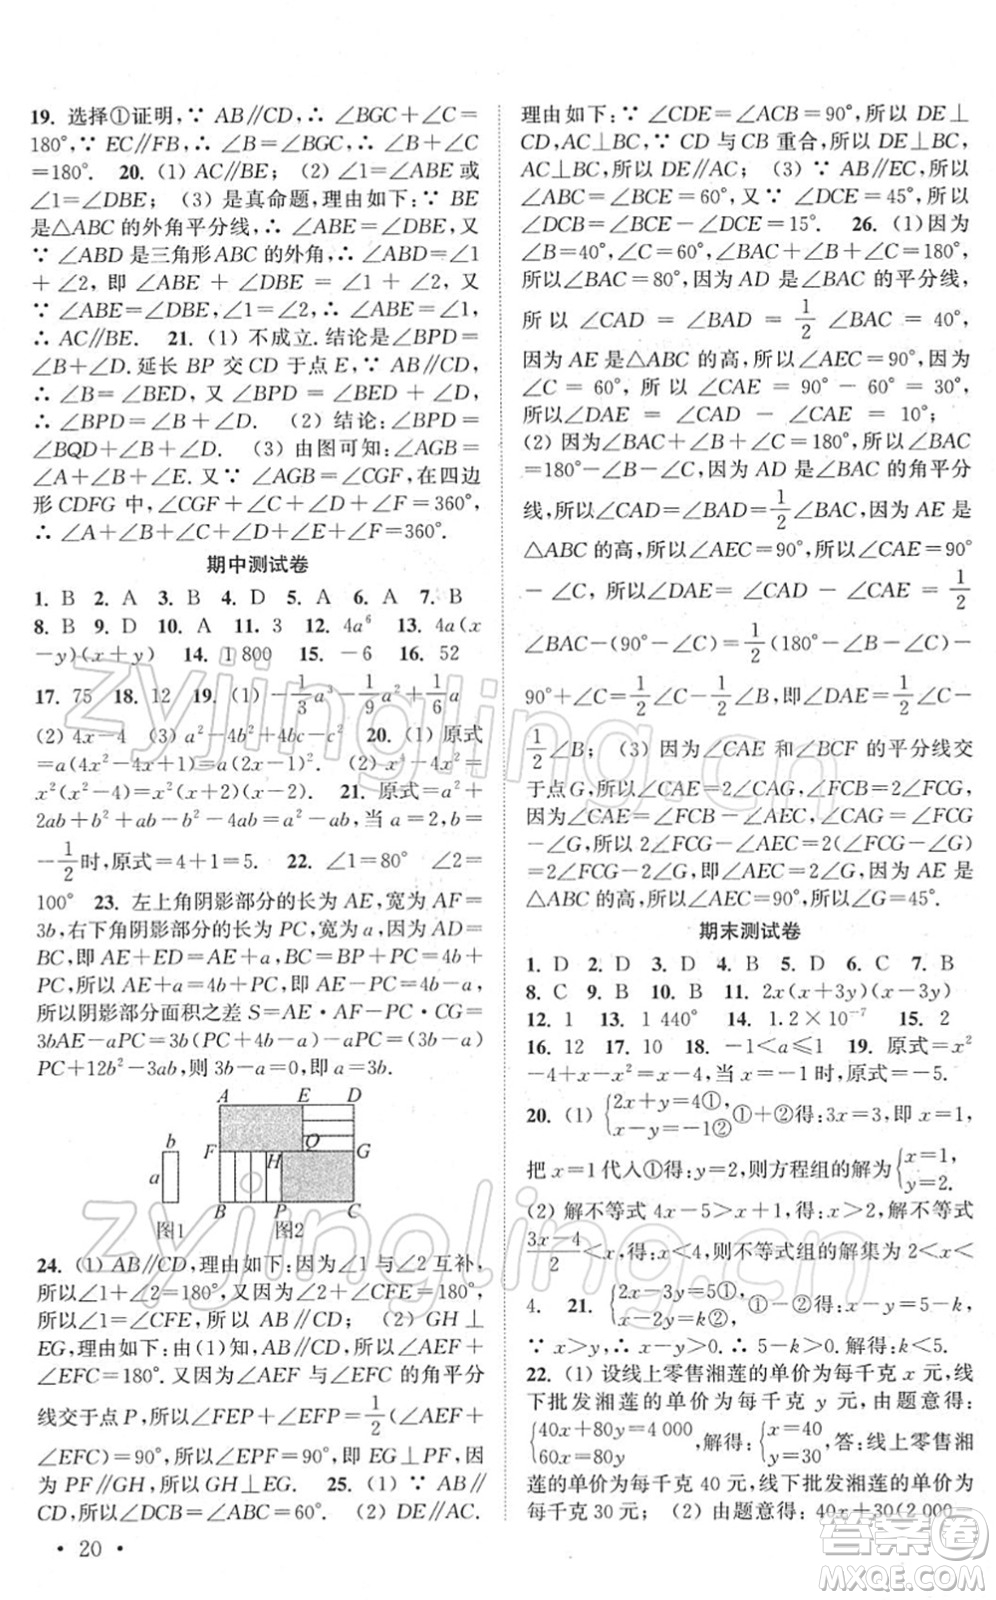 19. 选择①证明,∵ AB∥CD,∴ ∠BGC+∠C=
180°. ∵ EC∥FB,∴ ∠B=∠BGC,∴ ∠B+∠C
=180°. 20. (1) AC∥BE; (2) ∠1=∠ABE或
∠1=∠DBE; (3) 是真命题,理由如下:∵ BE
是△ABC的外角平分线,∴ ∠ABE=∠DBE,又
∵ ∠ABD是三角形ABC的外角,∴ ∠ABD=∠1
+∠2,即∠ABE+∠DBE=∠1+∠2,又
∵ ∠1=∠2,∴ ∠ABE=∠DBE,∴ ∠ABE=∠1,
∴ AC∥BE. 21. (1) 不成立.结论是∠BPD
=∠B+∠D.延长BP交CD于点E,∵ AB∥CD,
∴ ∠B=∠BED,又∠BPD=∠BED+∠D,
∴ ∠BPD=∠B+∠D. (2) 结论:∠BPD=
∠BQD+∠B+∠D. (3) 由图可知:∠AGB=
∠A+∠E+∠B.又∵ ∠AGB=∠CGF,在四边
形CDFG中,∠CGF+∠C+∠D+∠F=360°,
∴ ∠A+∠B+∠C+∠D+∠E+∠F=360°.
期中测试卷
1. B 2. A 3. B 4. D 5. A 6. A 7. B
8. B 9. D 10. A 11. 3 12. 4a⁶ 13. 4a(x
-y)(x+y) 14. 1 800 15. -6 16. 52
17. 75 18. 12 19. (1) -1/3a³-1/9a²+1/6a
(2) 4x-4 (3) a²-4b²+4bc-c² 20. (1) 原式
=a(4x²-4x+1)=a(2x-1)²; (2) x⁴-4x²=
x²(x²-4)=x²(x+2)(x-2) 21. 原式=a²+
2ab+b²+ab-2a²-b²-ab=2ab-a²,当a=2,b=
-1/2时,原式=4+1=5. 22. ∠1=80° ∠2=
100° 23. 左上角阴影部分的长为AE,宽为AF=
3b,右下角阴影部分的长为PC,宽为a,∵ AD=
BC,即AE+ED=AE+a,BC=BP+PC=4b+
PC,∴ AE+a=4b+PC,即AE=PC+4b-a,
所以阴影部分面积之差S=AE·AF-PC·CG=
3bAE-aPC=3b(PC+4b-a)-aPC=(3b-a)
PC+12b²-3ab,则3b-a=0,即a=3b.
A E D
b
F Q G
H
a
B P C
图1 图2
24. (1) AB∥CD,理由如下:因为∠1与∠2互补,
所以∠1+∠2=180°,又因为∠2+∠CFE=180°,
所以∠1=∠CFE,所以AB∥CD; (2) GH⊥
EG,理由如下:由(1)知,AB∥CD,所以∠AEF+
∠EFC=180°,又因为∠AEF与∠EFC的角平分
线交于点P,所以∠FEP+∠EFP=1/2(∠AEF+
∠EFC)=90°,所以∠EPF=90°,即EG⊥PF,因
为PF∥GH,所以GH⊥EG. 25. (1) ∵ AB∥
CD,所以∠DCB=∠ABC=60°. (2) DE∥AC.
理由如下:∵ ∠CDE=∠ACB=90°,所以DE⊥
CD,AC⊥BC,∵ CD与CB重合,所以DE⊥BC,
AC⊥BC,所以DE∥AC; (3) ∵ AB∥EC,所以
∠ABC=∠BCE=60°,又∵ ∠DCE=45°,所以
∠DCB=∠BCE-∠DCE=15°. 26. (1) 因为
∠B=40°,∠C=60°,∠BAC+∠B+∠C=180°,
所以∠BAC=80°,因为AD是∠BAC的平分线,
所以∠CAD=∠BAD=1/2∠BAC=40°,
因为AE是△ABC的高,所以∠AEC=90°,因为
∠C=60°,所以∠CAE=90°-60°=30°,
所以∠DAE=∠CAD-∠CAE=10°;
(2) 因为∠BAC+∠B+∠C=180°,所以∠BAC
=180°-∠B-∠C,因为AD是∠BAC的角平分
线,所以∠CAD=∠BAD=1/2∠BAC,因为AE是
△ABC的高,所以∠AEC=90°,所以∠CAE=90°
-∠C,所以∠DAE=∠CAD-∠CAE=1/2
∠BAC-(90°-∠C)=1/2(180°-∠B-∠C)-
90°+∠C=1/2∠C-1/2∠B,即∠DAE=1/2∠C-
1/2∠B; (3) 因为∠CAE和∠BCF的平分线交
于点G,所以∠CAE=2∠CAG,∠FCB=2∠FCG,
因为∠CAE=∠FCB-∠AEC,∠CAG=∠FCG
-∠G,所以2∠FCG-∠AEC=2(∠FCG-∠G)
=2∠FCG-2∠G,即∠AEC=2∠G,因为AE是
△ABC的高,所以∠AEC=90°,所以∠G=45°.
期末测试卷
1. D 2. D 3. D 4. B 5. D 6. C 7. B
8. C 9. B 10. B 11. 2x(x+3y)(x-3y)
12. 1 13. 1 440° 14. 1.2×10⁻⁷ 15. 2
16. 12 17. 10 18. -1<a≤1 19. 原式=x²
-4+x-x²=x-4,当x=-1时,原式=-5.
20. (1) {2x+y=4①, x-y=-1② ①+②得:3x=3,即x=1,
把x=1代入①得:y=2,则方程组的解为{x=1, y=2.
(2) 解不等式4x-5>x+1,得:x>2,解不等式
(3x-4)/2<x,得:x<4,则不等式组的解集为2<x<
4. 21. {2x-3y=5①, x-2y=k②, ①-②得:x-y=5-k,
∵ x>y,∴ x-y>0. ∴ 5-k>0.解得:k<5.
22. (1) 设线上零售湘莲的单价为每千克x元,线
下批发湘莲的单价为每千克y元,由题意得:
{40x+80y=4 000, 60x=80y ,解得:{x=40, y=30 ,答:线上零售湘
莲的单价为每千克40元,线下批发湘莲的单价为
每千克30元; (2) 由题意得:40x+30(2 000-
· 20 ·
zyjingling.cn
zyjingling.cn
答案圈
MXQE.COM